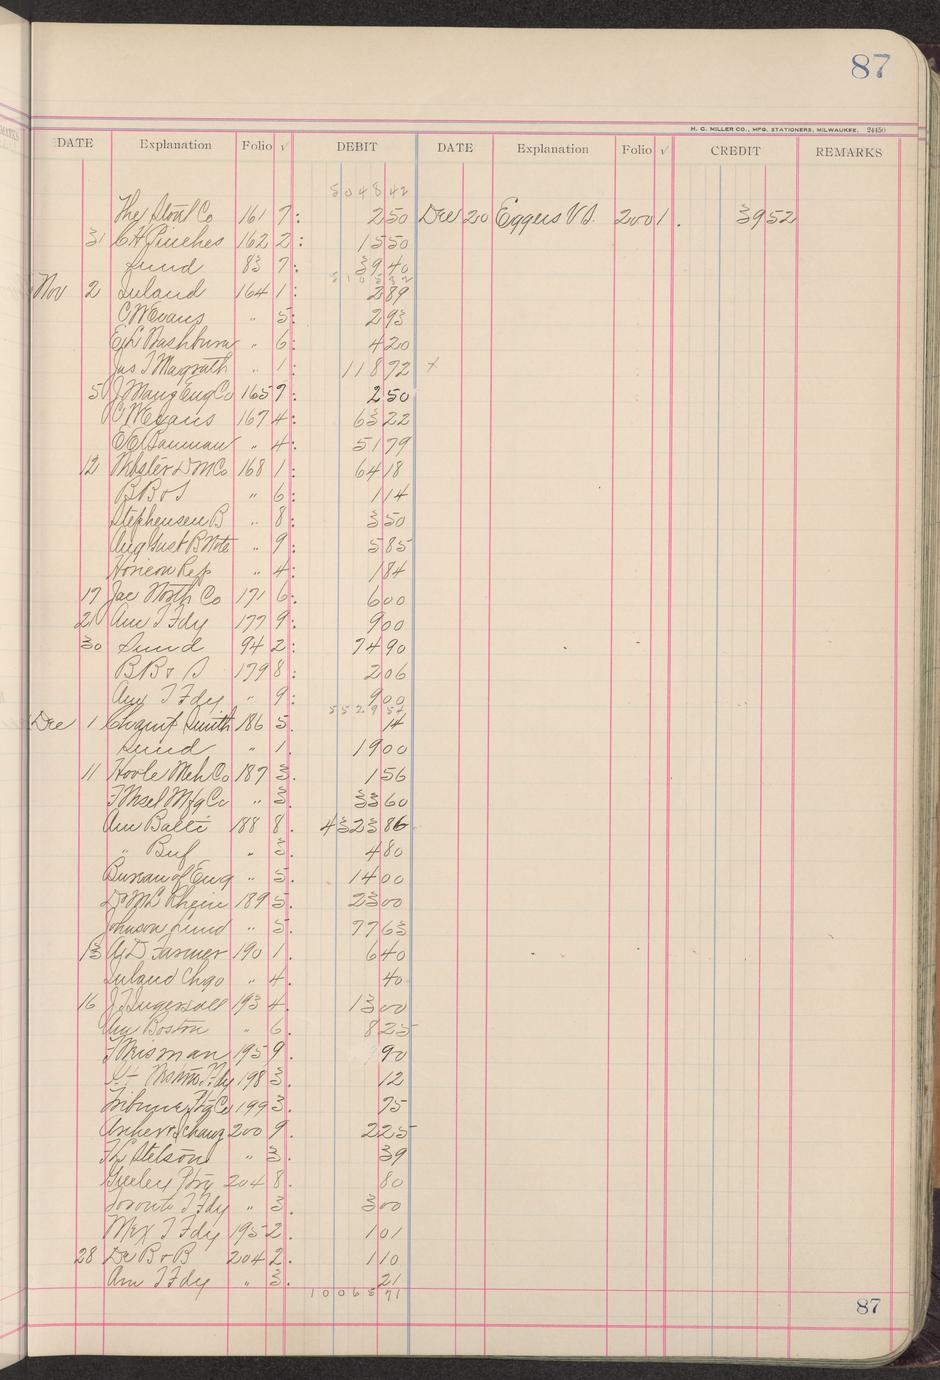 87
H. C. MILLER CO., MFG. STATIONERS, MILWAUKEE. 24450
DATE Explanation Folio √ DEBIT DATE Explanation Folio √ CREDIT REMARKS
504842
The Stoul Co 161 7: 2 50 Dec 20 Eggers V S. 200 1. 39 52
31 C H Pinches 162 2: 15 50
Sund 83 7: 39 40
510532
Nov 2 Inland 164 1: 2 89
C W Evans " 5: 2 93
E L Washburn " 6: 4 20
Jas T Magrath " 1: 118 72 x
5 J Mang Eng Co 165 7: 2 50
C W Evans 167 4: 63 22
E E Bauman " 4: 51 79
12 Webster D M Co 168 1: 64 18
B B & S " 6: 1 14
Stephensen B " 8: 3 50
Aug Gust B Note " 9: 5 85
Horicon Rep " 4: 1 84
17 Jac North Co 171 6: 6 00
21 Am T Fdy 177 9: 9 00
30 Sund 94 2: 74 90
B B & S 179 8: 2 06
Am T Fdy " 9: 9 00
552957
Dec 1 Champ Smith 186 5. 14
Sund " 1. 19 00
11 Hoole Mch Co 187 3. 1 56
Mfg Co " 3. 33 60
Am Balti 188 8. 4323 86
" Buf " 3. 4 80
Bureau of Eng " 5. 14 00
Rhein 189 5. 23 00
Johnson Sund " 5. 77 63
13 A D Farmer 190 1. 6 40
Inland Chgo " 4. 40
16 J T Ingersoll 193 4. 13 00
Am Boston " 6. 8 25
195 9. 90
Fdy 198 3. 12
Tribune Ptg Co 199 3. 75
200 9. 2 25
Stetson " 3. 39
Greeley Ptg 204 8. 80
Toronto T Fdy " 3. 3 00
Mex T Fdy 195 2. 1 01
28 De B & B 204 2. 1 10
Am T Fdy " 3. 21
1006571
87